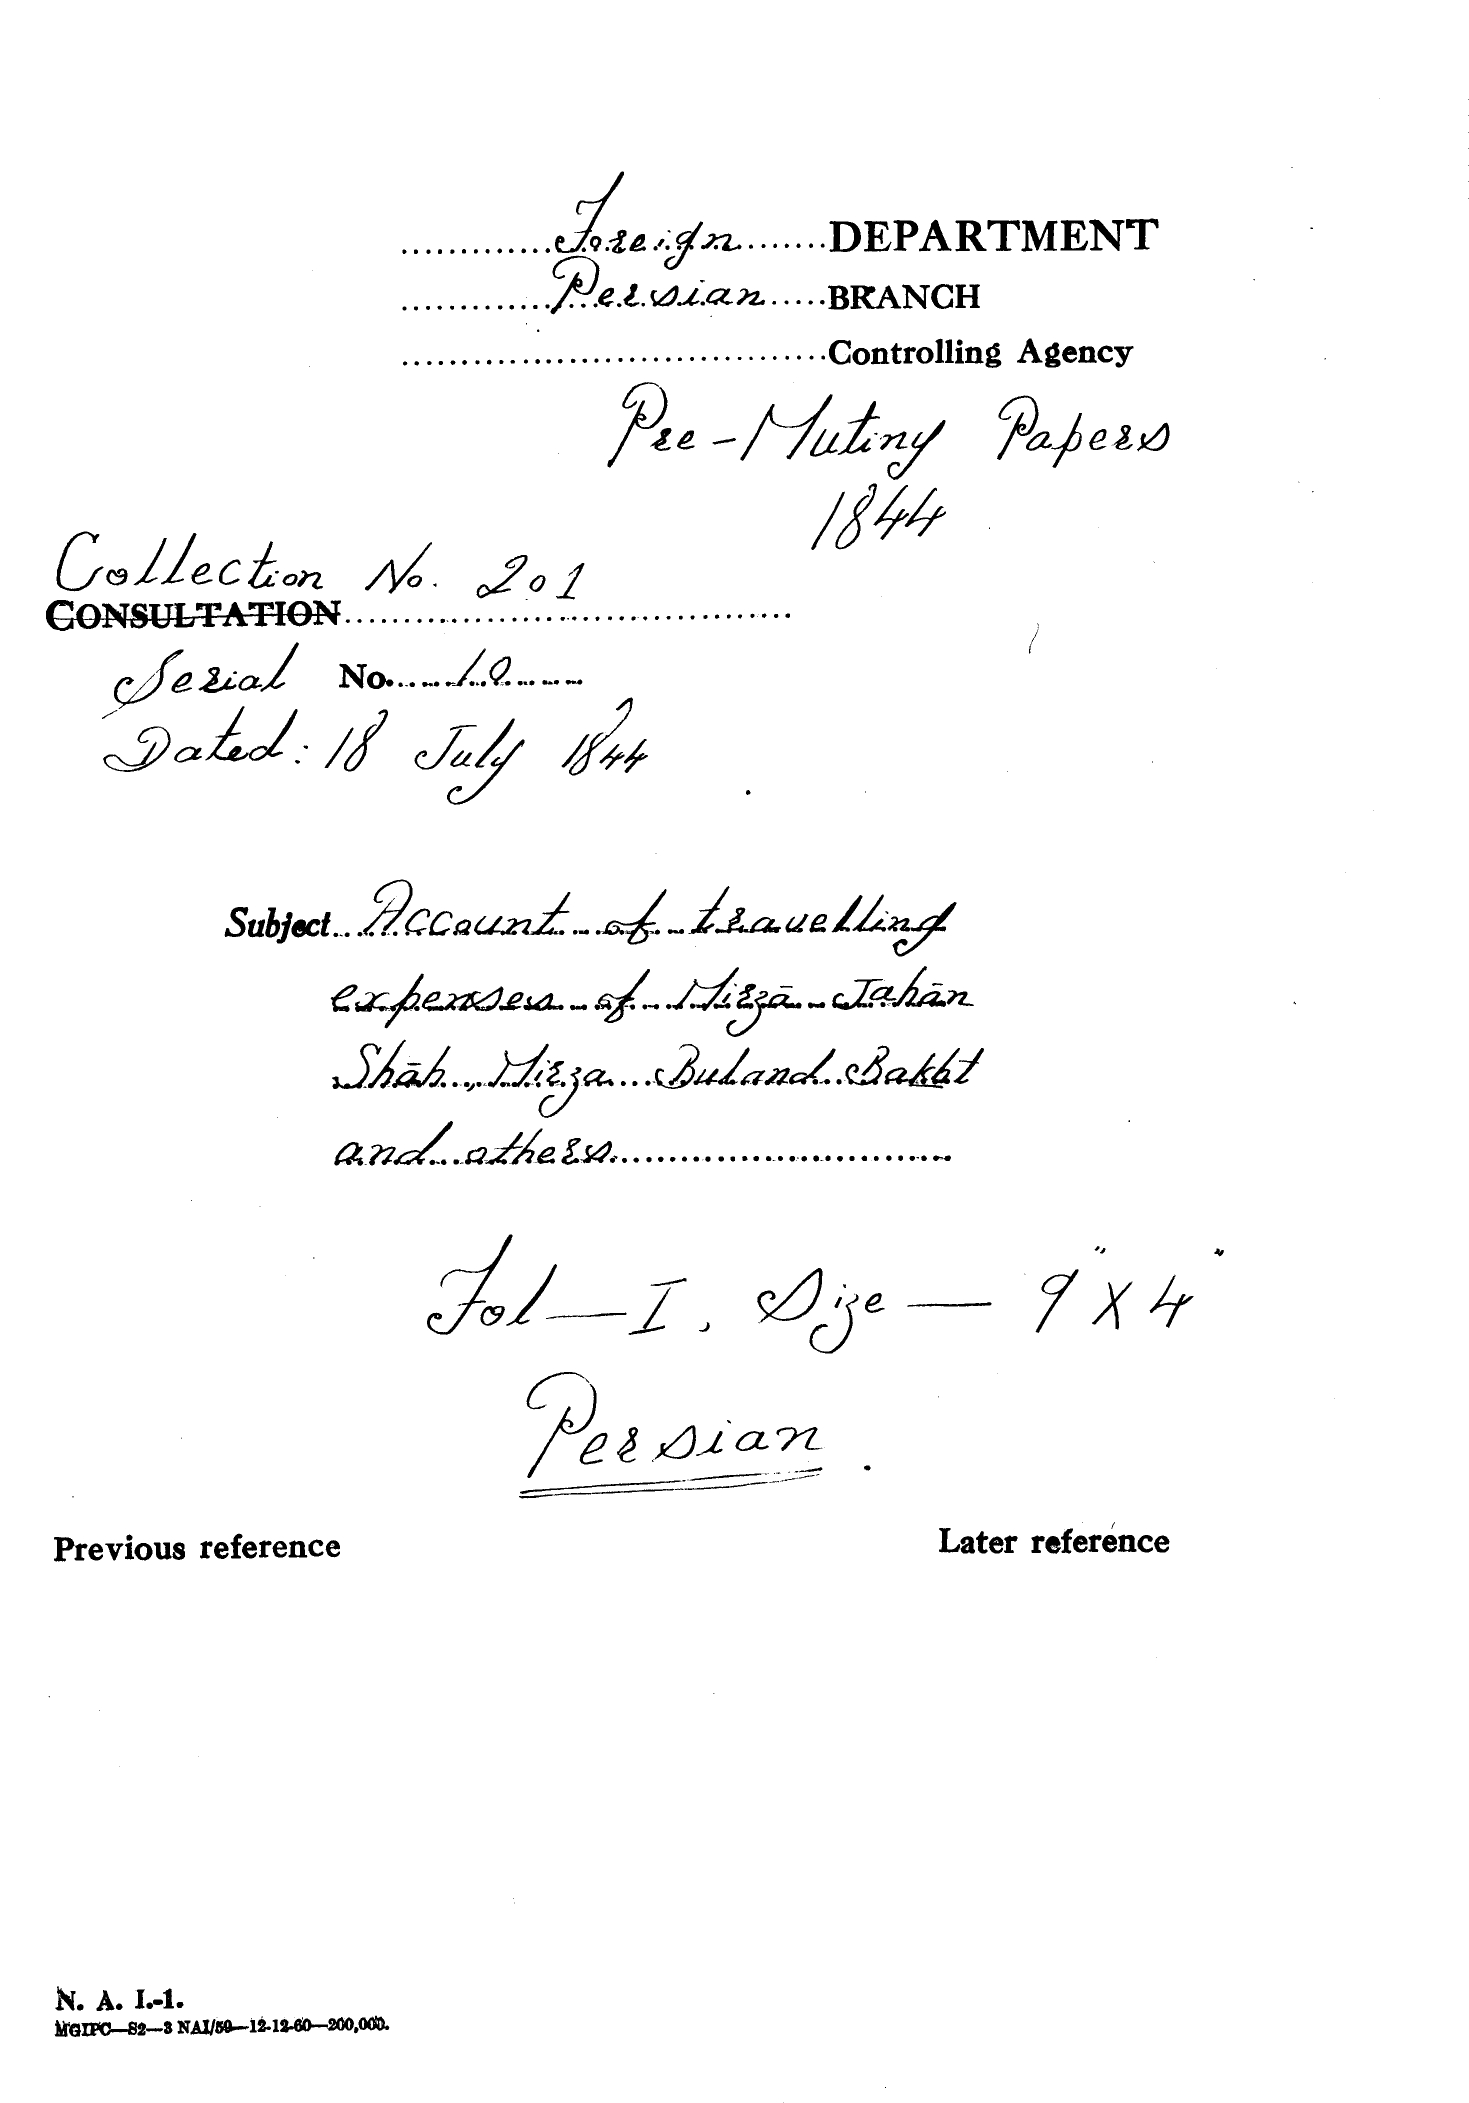 Foreign DEPARTMENT
Persian BRANCH
Controlling Agency
Pre-Mutiny Papers
1844
Collection No. 201
CONSULTATION
Serial No. 10
Dated: 18 July 1844
Subject Account of travelling
expenses of Mirzā Jahān
Shāh, Mirza Buland Bakht
and others
Fol—I. Size — 9" X 4"
Persian.
Previous reference
Later reference
N. A. I.-1.
MGIPC—S2—3 NAI/59—12-12-60—200,000.